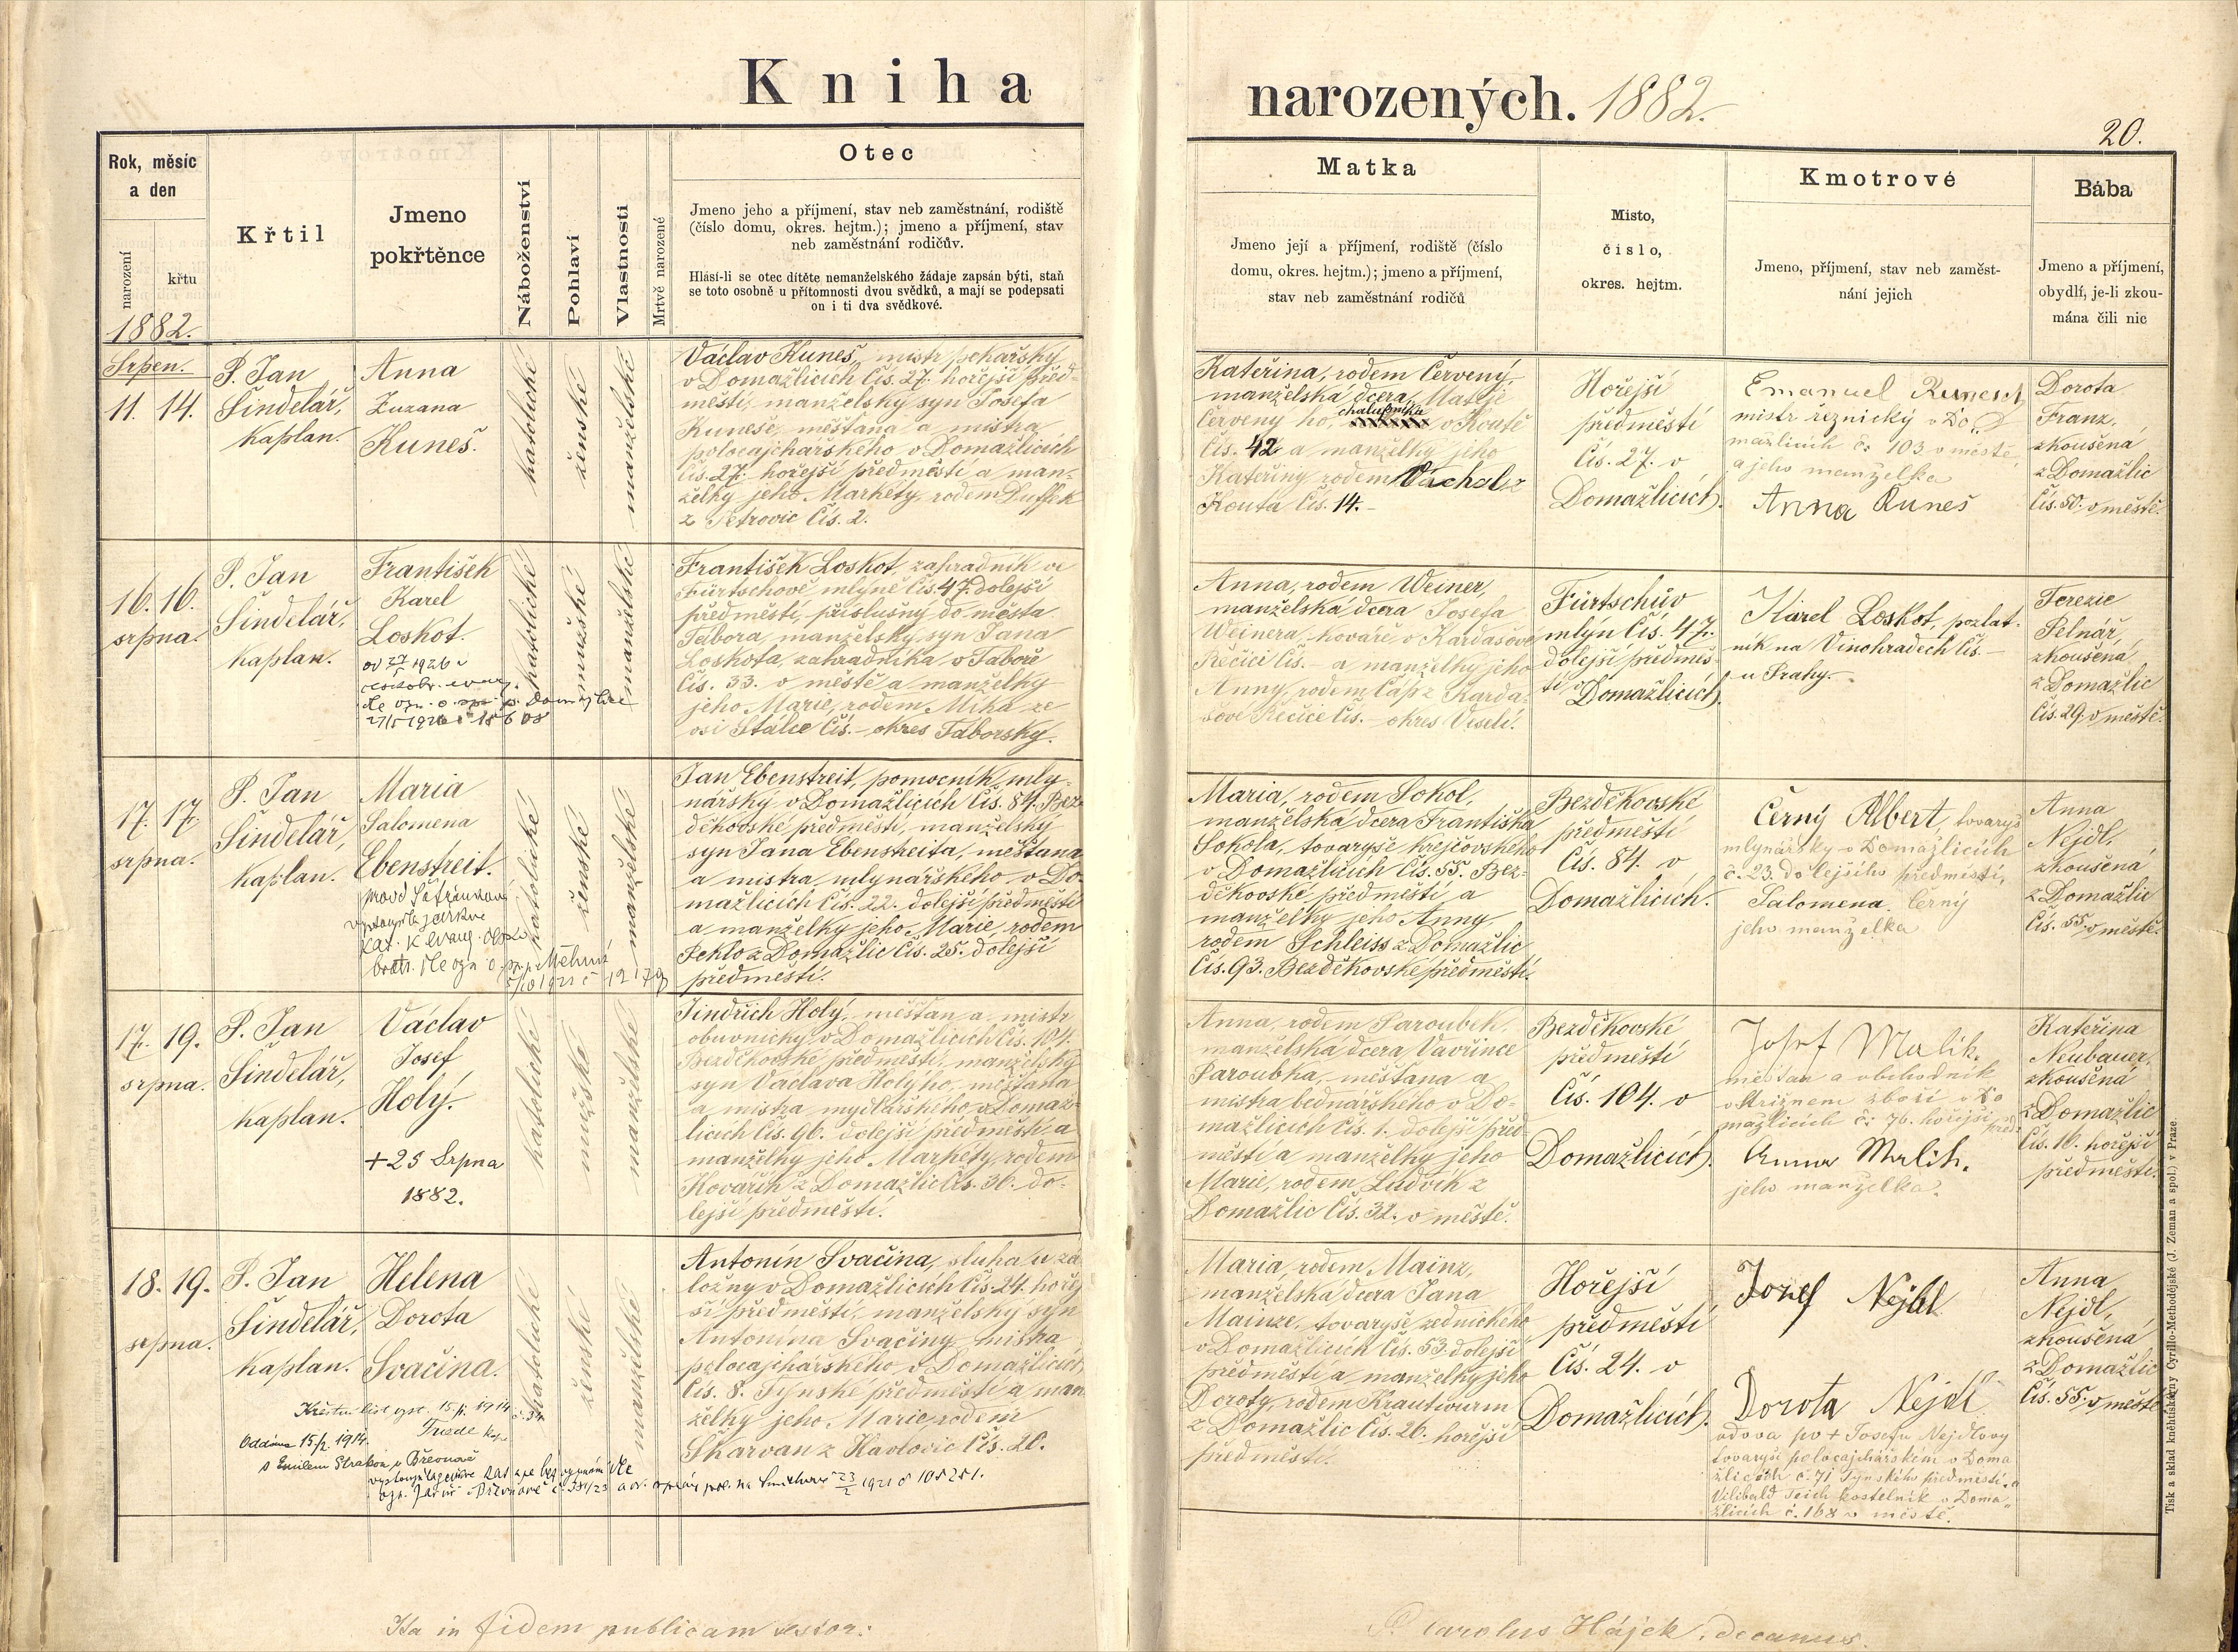 Kniha
narozených. 1882.
20.
Rok, měsíc
a den
narození
křtu
1882.
Křtil
Jmeno
pokřtěnce
Náboženství
Pohlaví
Vlastnosti
Mrtvě narozené
Otec
Jmeno jeho a příjmení, stav neb zaměstnání, rodiště
(číslo domu, okres. hejtm.); jmeno a příjmení, stav
neb zaměstnání rodičův.
Hlásí-li se otec dítěte nemanželského žádaje zapsán býti, staň
se toto osobně u přítomnosti dvou svědků, a mají se podepsati
on i ti dva svědkové.
Matka
Jmeno její a příjmení, rodiště (číslo
domu, okres. hejtm.); jmeno a příjmení,
stav neb zaměstnání rodičů
Misto,
číslo,
okres. hejtm.
Kmotrové
Jmeno, příjmení, stav neb zaměst-
nání jejich
Bába
Jmeno a příjmení,
obydlí, je-li zkou-
mána čili nic
Srpen.
11. 14.
P. Jan
Šindelář,
kaplan.
Anna
Zuzana
Kuneš.
katolické
ženské
manželské
Václav Kuneš, mistr pekařský
v Domažlicích Čís. 27. hořejší před-
městí, manželský syn Josefa
Kuneše, měšťana a mistra
polocajchářského v Domažlicích
Čís. 27. hořejší předměstí a man-
želky jeho Markéty, rodem Duffek
z Petrovic Čís. 2.
Kateřina, rodem Červený,
manželská dcera Matěje
Červený ho, chalupníka v Koutě
Čís. 42 a manželky jeho
Kateřiny rodem Váchal z
Kouta Čís. 14.-
Hořejší
předměstí
Čís. 27. v
Domažlicích.
Emanuel Kunesch
mistr řeznický v Do
mažlicích č. 103 v městě
a jeho manželka
Anna Kuneš
Dorota
Franz,
zkoušená
z Domažlic
Čís. 50. v městě.
16. 16.
srpna.
P. Jan
Šindelář,
kaplan.
František
Karel
Loskot.
1926
27/5 1926
katolické
mužské
manželské
František Loskot, zahradník ve
Fürtschově mlýně Čís. 47. dolejší
předměstí, příslušný do města
Tábora, manželský syn Jana
Loskota, zahradníka v Táboře
Čís. 33. v městě a manželky
jeho Marie, rodem Míka ze
vsi Stálce Čís. – okres Táborský.
Anna, rodem Weiner,
manželská dcera Josefa
Weinera, kováře v Kardašově
Řečici Čís. – a manželky jeho
Anny, rodem Čáp z Karda-
šové Řečice Čís. – okres Veselí.
Fürtschův
mlýn Čís. 47.
dolejší předměs-
tí v
Domažlicích.
Karel Loskot, pozlat-
ník na Vinohradech Čís –
u Prahy.
Terezie
Pelnář,
zkoušená
z Domažlic
Čís. 29. v městě.
17. 17.
srpna.
P. Jan
Šindelář,
kaplan.
Maria
Salomena
Ebenstreit.
katolické
ženské
manželské
Jan Ebenstreit, pomocník mly-
nářský v Domažlicích Čís. 84. Bez-
děkovské předměstí, manželský
syn Jana Ebenstreita, měšťana
a mistra mlynářského v Do-
mažlicích Čís. 22. dolejší předměstí
a manželky jeho Marie, rodem
Peklo z Domažlic Čís. 25. dolejší
předměstí.
Maria, rodem Sokol,
manželská dcera Františka
Sokola, tovaryše krejčovského
v Domažlicích Čís. 55. Bez-
děkovské předměstí a
manželky jeho Anny
rodem Schleiss z Domažlic
Čís. 93. Bezděkovské předměstí.
Bezděkovské
předměstí
Čís. 84. v
Domažlicích.
Černý Albert, tovaryš
mlynářský v Domažlicích
č. 23. dolejšího předměstí,
Salomena Černý
jeho manželka
Anna
Nejdl,
zkoušená
z Domažlic
Čís. 55. v městě.
17. 19.
srpna.
P. Jan
Šindelář,
kaplan.
Václav
Josef
Holý.
+ 25 Srpna
1882.
katolické
mužské
manželské
Jindřich Holý, měšťan a mistr
obuvnický v Domažlicích Čís. 104.
Bezděkovské předměstí, manželský
syn Václava Holýho, měšťana
a mistra mydlářského v Domaž-
licích Čís. 96. dolejší předměstí a
manželky jeho Markéty, rodem
Kovařík z Domažlic Čís. 30. do-
lejší předměstí.
Anna, rodem Paroubek,
manželská dcera Vavřince
Paroubka, měšťana a
mistra bednářského v Do-
mažlicích Čís. 1. dolejší před-
městí a manželky jeho
Marie, rodem Ludvík z
Domažlic Čís. 32. v městě.
Bezděkovské
předměstí
Čís. 104. v
Domažlicích.
Josef Malik.
měšťan a obchodník
v střižném zboží v Do
mažlicích č. 76. hořejší před.
Anna Malik.
jeho manželka.
Kateřina
Neubauer,
zkoušená
z Domažlic
Čís. 10. hořejší
předměstí.
18. 19.
srpna.
P. Jan
Šindelář,
kaplan.
Helena
Dorota
Svačina.
Křestní list vyst. 15./1. 1914
Oddána 15/2. 1914.
s Emilem Strakou v Břevnově
katolické
ženské
manželské
Antonín Svačina, sluha u zá
ložny v Domažlicích Čís. 24. hořej
ší předměstí, manželský syn
Antonína Svačiny mistra
polocajchářského v Domažlicích
Čís. 8. Týnské předměstí a man
želky jeho Marie rodem
Skarvan z Havlovic Čís. 20.
Maria, rodem Mainz,
manželská dcera Jana
Mainze, tovaryše zednického
v Domažlicích Čís. 53. dolejší
předměstí a manželky jeho
Doroty, rodem Krautwurm
z Domažlic Čís. 26. hořejší
předměstí.
Hořejší
předměstí
Čís. 24. v
Domažlicích.
Josef Nejdl
Dorota Nejdl
vdova po + Josefu Nejdlovy
tovaryši polocajchářském v Doma
žlicích č. 71 Týnského předměstí, a
Vilibald kostelník v Doma-
žlicích č. 168 v městě.
Anna
Nejdl,
zkoušená
z Domažlic
Čís. 55. v městě
Ita in fidem publicam testor:
P. Carolus Hájek, decanus.
Tisk a sklad knihtiskárny Cyrillo-Methodějské (J. Zeman a spol.) v Praze